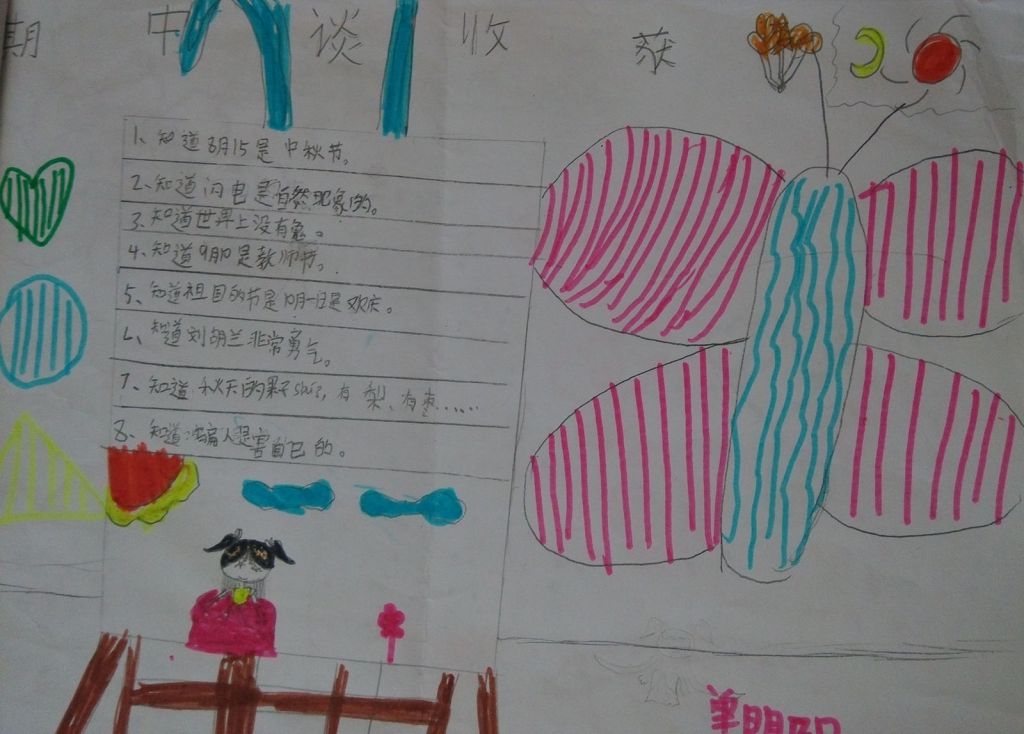 期中谈收获
1、知道8月15是中秋节。
2、知道闪电是自然现象的。
3、知道世界上没有鬼。
4、知道9月10是教师节。
5、知道祖国的节是10月一日是欢庆。
6、知道刘胡兰非常勇气。
7、知道秋天的果子shis,有梨、有枣……
8、知道骗人是害自己的。